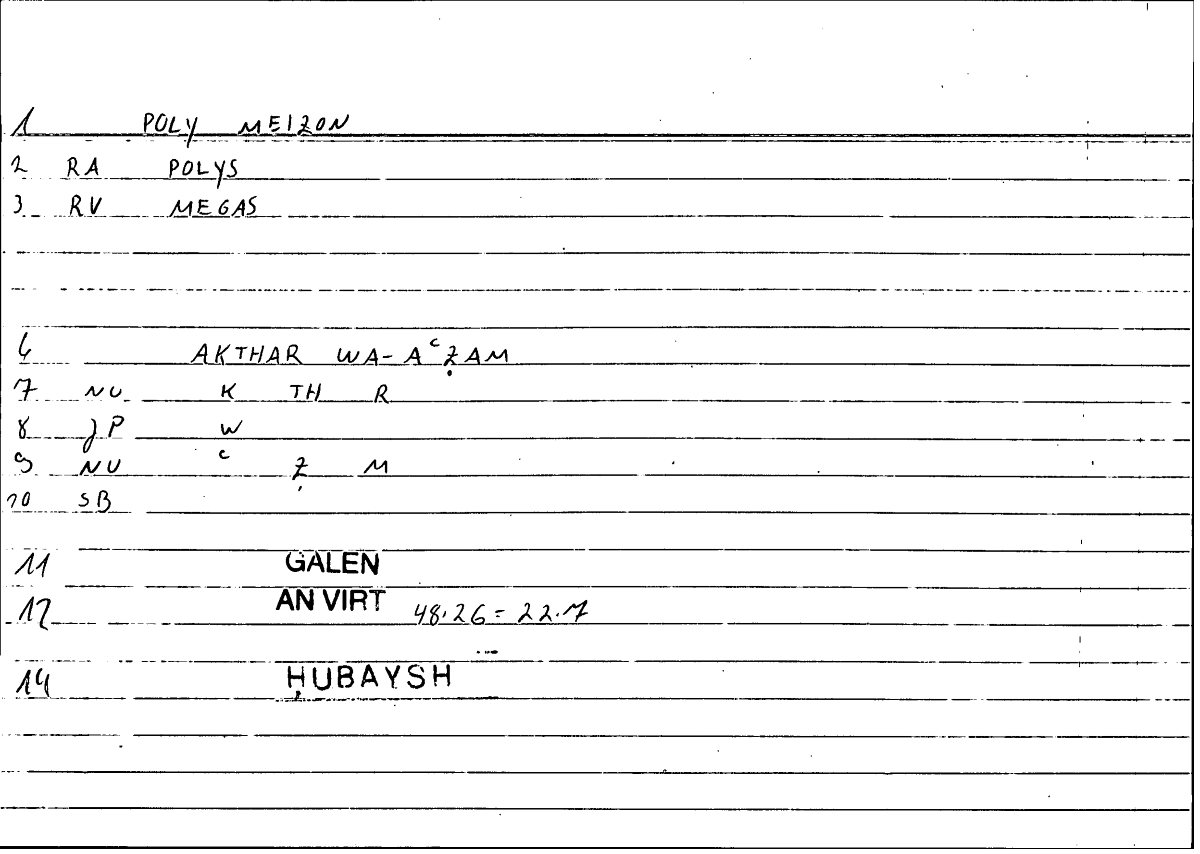 1 POLY MEIZON
2 RA POLYS
3 RV MEGAS
6 AKTHAR WA-AʿẒAM
7 NU K TH R
8 JP W
9 NU ʿ Ẓ M
10 SB
11 GALEN
12 AN VIRT 48.26 = 22.17
14 ḤUBAYSH